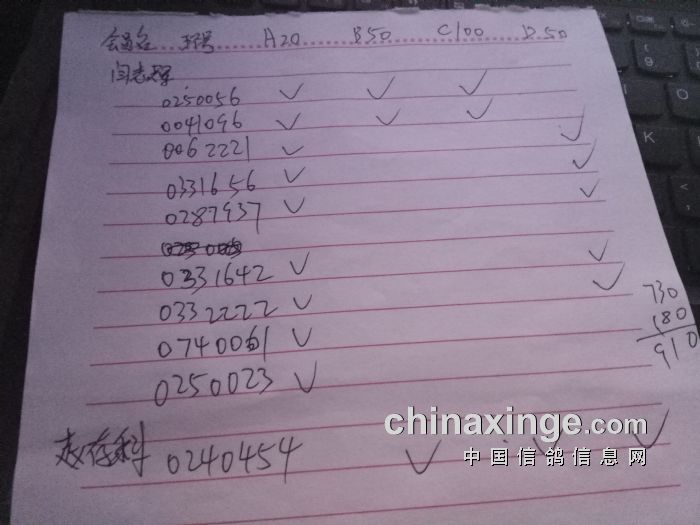 会员名 环号 A20 B50 C100 D50
闫志
0250056 ✓ ✓ ✓
0041096 ✓ ✓ ✓
0062221 ✓ ✓
0331656 ✓ ✓
0287937 ✓ ✓
0331642 ✓ ✓
0332222 ✓ ✓
0740061 ✓
0250023 ✓
730
180
910
赵存科 0240454 ✓ ✓ ✓
chinaxinge.com
中国信鸽信息网